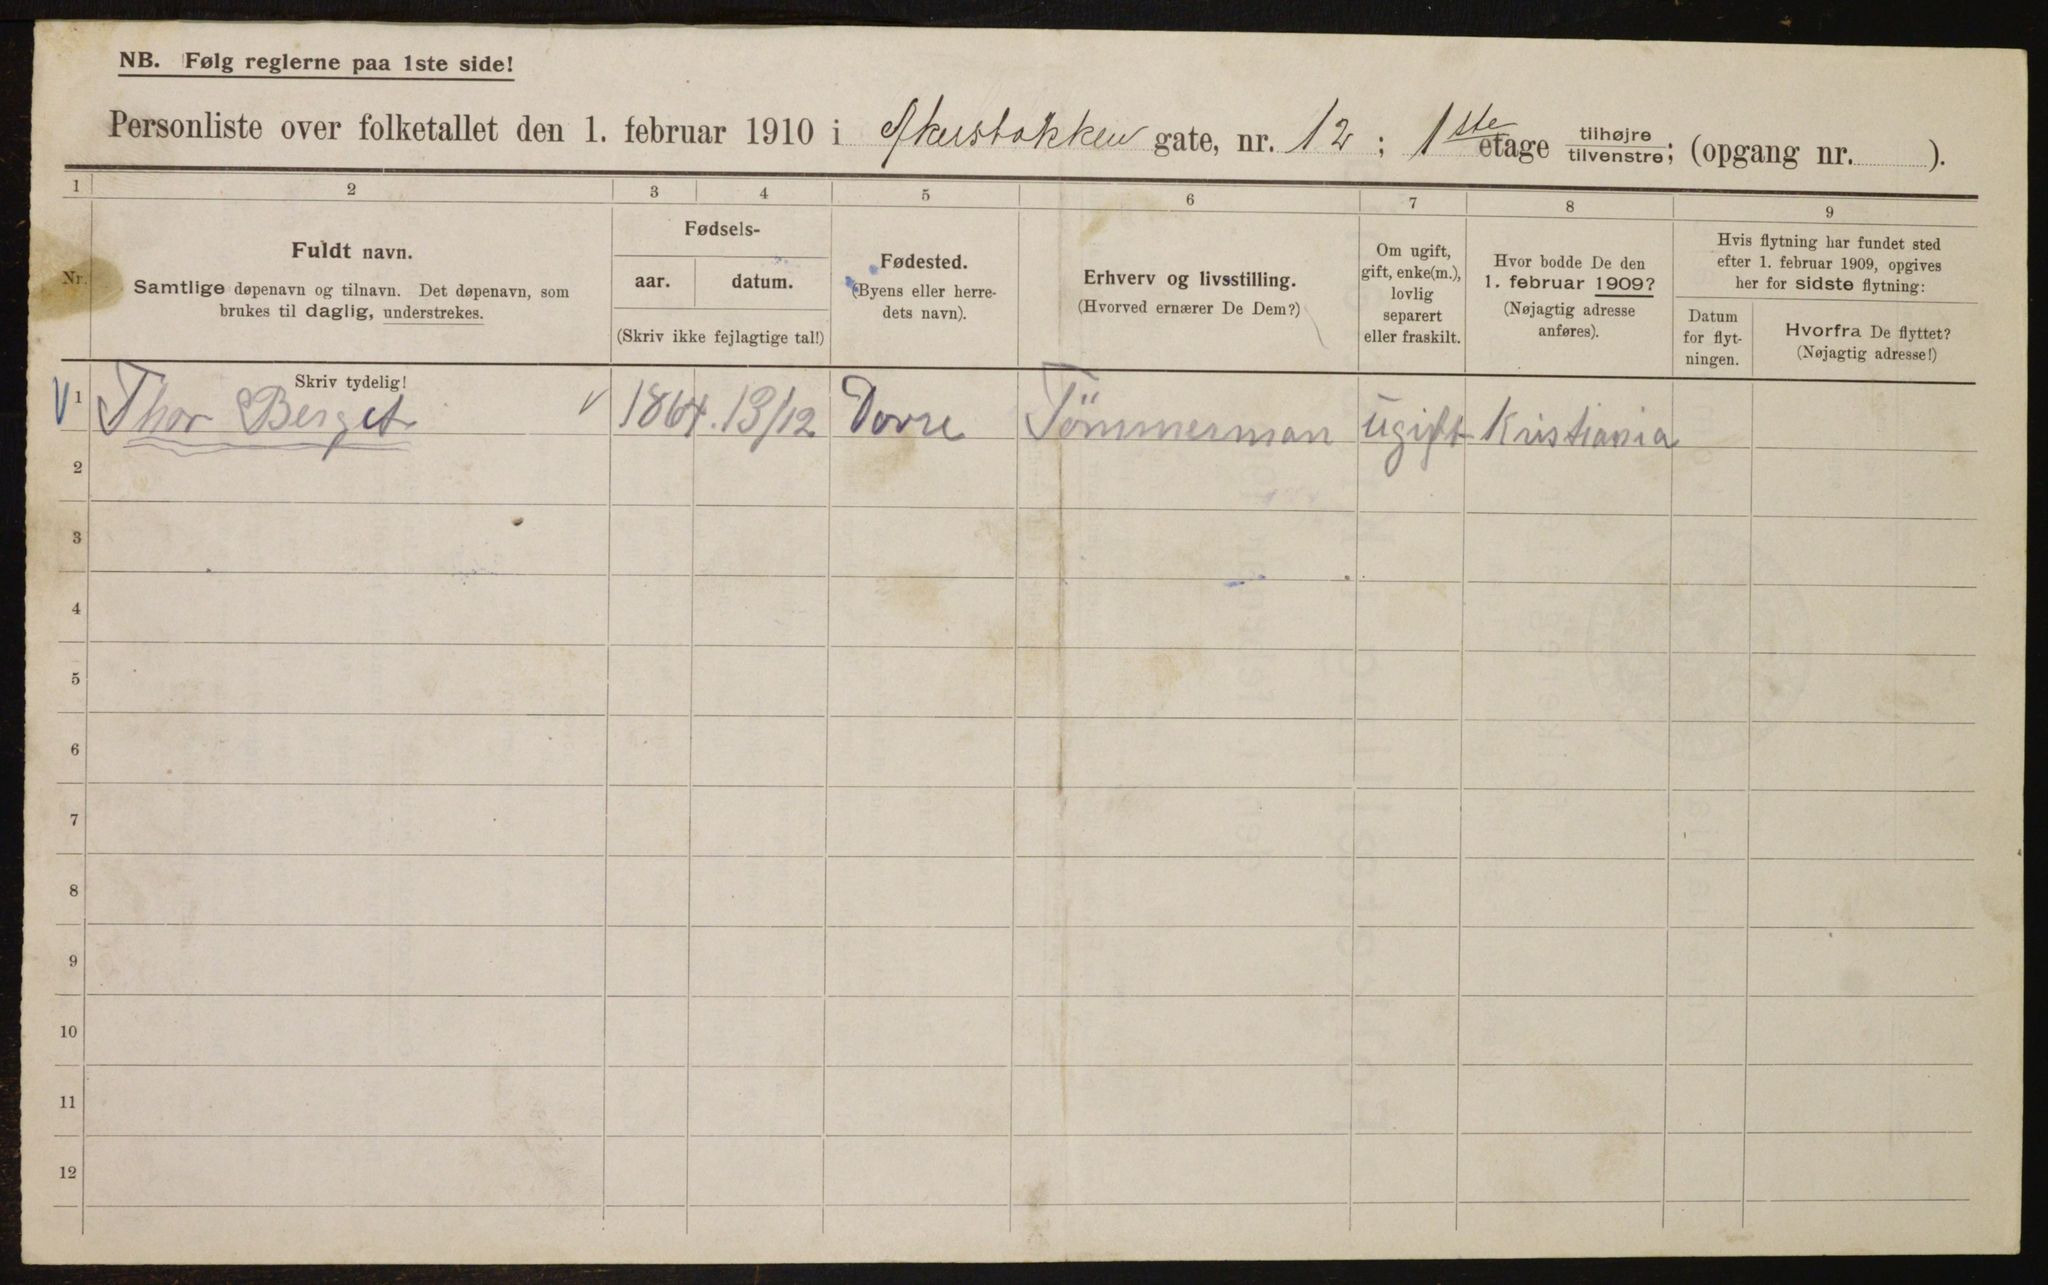 NB. Følg reglerne paa 1ste side!
Personliste over folketallet den 1. februar 1910 i Akersbakken gate, nr. 12 ; 1ste etage tilhøjre/tilvenstre; (opgang nr. ).
1 2 3 4 5 6 7 8 9
Nr.
Fuldt navn.
Samtlige døpenavn og tilnavn. Det døpenavn, som
brukes til daglig, understrekes.
Fødsels-
aar. datum.
(Skriv ikke fejlagtige tal!)
Fødested.
(Byens eller herre-
dets navn).
Erhverv og livsstilling.
(Hvorved ernærer De Dem?)
Om ugift,
gift, enke(m.),
lovlig
separert
eller fraskilt.
Hvor bodde De den
1. februar 1909?
(Nøjagtig adresse
anføres).
Hvis flytning har fundet sted
efter 1. februar 1909, opgives
her for sidste flytning:
Datum
for flyt-
ningen.
Hvorfra De flyttet?
(Nøjagtig adresse!)
Skriv tydelig!
1 Thor Berget 1864. 13/12 Dovre Tömmerman ugift Kristiania
2
3
4
5
6
7
8
9
10
11
12